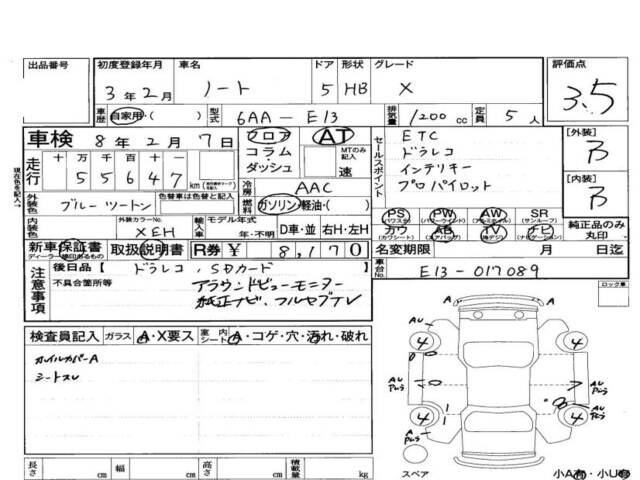 出品番号 初度登録年月 車名 ドア 形状 グレード 評価点
3年2月 ノート 5 HB X 3.5
車歴 自家用・( ) 型式 6AA-E13 排気量 1200cc 定員 5人
車検 8年2月7日 フロア AT
コラム・ダッシュ MTのみ記入 速
走行 十万千百十一
55647 km
冷房 AAC
セールスポイント ETC
ドラレコ
インテリキー
プロパイロット
[外装] B
[内装] B
現在色を記入→
外装色 ブルーツートン 色替車は色替と記入 燃料 ガソリン・軽油・( )
内装色 外装カラーNo. XEH 輸入車 モデル年式 年・不明 D車・並 右H・左H
PS PW AW SR
(パワステ) (パワーウインド) (アルミホイル) (サンルーフ)
カワ AB TV ナビ 純正品のみ丸印
(カワシート) (エアバッグ) (地デジ) (ナビゲーション)
新車保証書 取扱説明書 R券 ¥ 8,170 名変期限 月 日迄
ディーラー捺印あるもの
車台No. E13-017089
注意事項 後日品【 ドラレコ、SDカード 】
不具合箇所等 アラウンドビューモニター
純正ナビ、フルセグTV
ロック車
検査員記入 ガラス A・X要ス 室内シート A・コゲ・穴・汚れ・破れ
ホイルカバーA
シートスレ
A A
AU
4 4
AU AU
4 4
A
スペア 小A有・小U有
長さ cm 幅 cm 高さ cm 積載量 kg